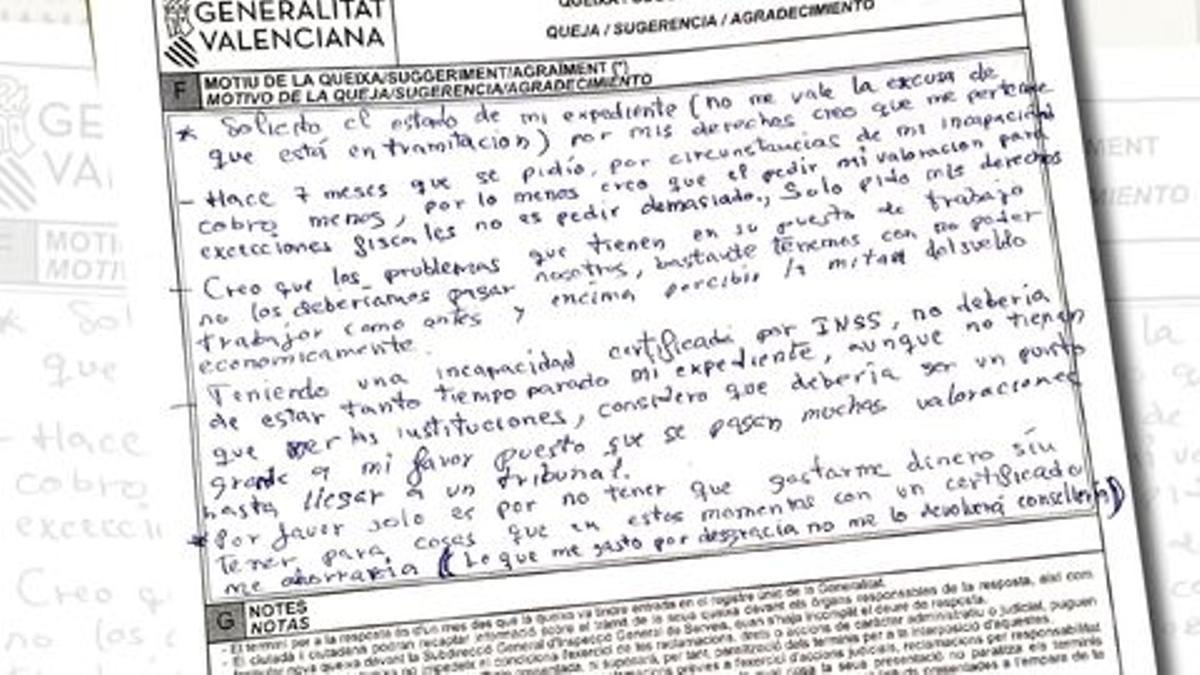 GENERALITAT
VALENCIANA
QUEJA / SUGERENCIA / AGRADECIMIENTO
F MOTIU DE LA QUEIXA/SUGGERIMENT/AGRAÏMENT (*)
MOTIVO DE LA QUEJA/SUGERENCIA/AGRADECIMIENTO
* Solicito el estado de mi expediente (no me vale la excusa de
que está en tramitación) por mis derechos creo que me pertenece
- Hace 7 meses que se pidió, por circunstancias de mi incapacidad
cobro menos, por lo menos creo que el pedir mi valoración para
execciones fiscales no es pedir demasiado., Solo pido mis derechos
- Creo que los problemas que tienen en su puesto de trabajo
no los deberíamos pagar nosotros, bastante tenemos con no poder
trabajar como antes y encima percibir la mitad del sueldo
economicamente.
- Teniendo una incapacidad certificada por INSS, no debería
de estar tanto tiempo parado mi expediente, aunque no tienen
que ver las instituciones, considero que debería ser un punto
grande a mi favor puesto que se pasan muchas valoraciones
hasta llegar a un tribunal.
* Por favor solo es por no tener que gastarme dinero sin
tener para cosas que en estos momentos con un certificado
me ahorraria (Lo que me gasto por desgracia no me lo devolverá consellería)
G NOTES
NOTAS
- El termini per a la resposta és d'un mes des que la queixa va tindre entrada en el registre únic de la Generalitat.